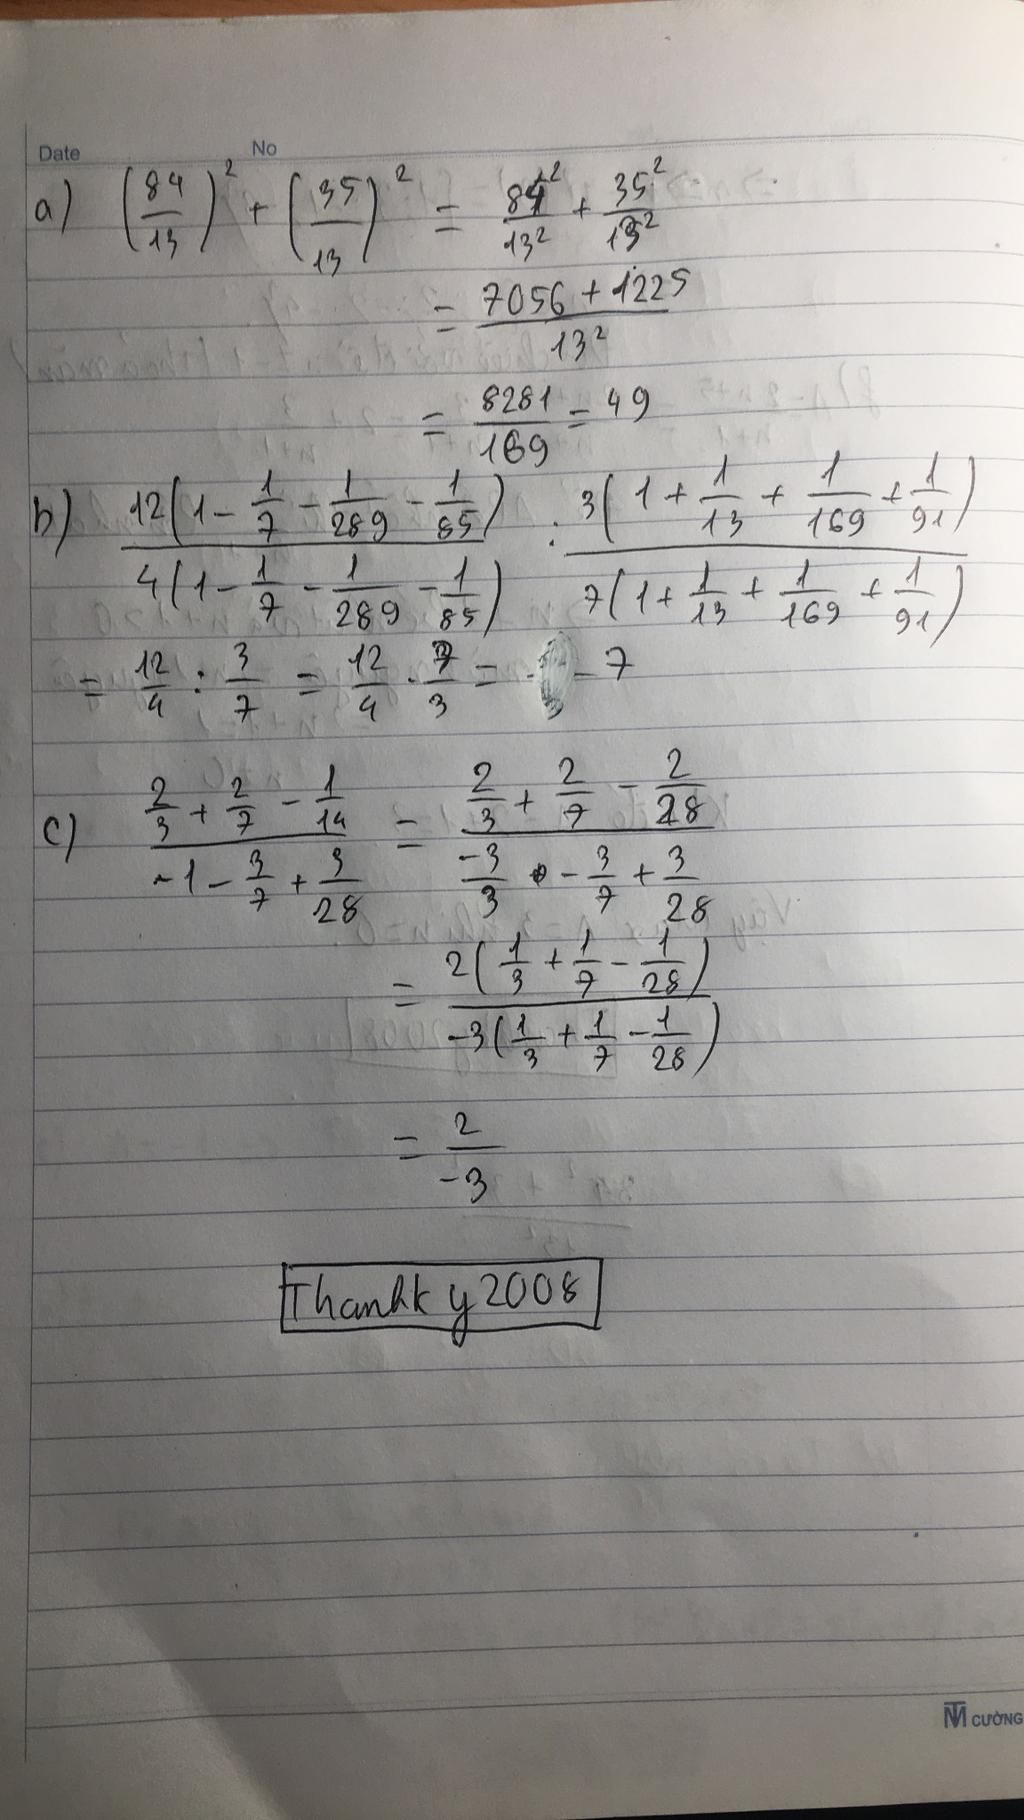 Date No
a) (84/13)² + (35/13)² = 84²/13² + 35²/13²
= (7056 + 1225)/13²
= 8281/169 = 49
b) 12(1 - 1/7 - 1/289 - 1/85) / 4(1 - 1/7 - 1/289 - 1/85) : 3(1 + 1/13 + 1/169 + 1/91) / 7(1 + 1/13 + 1/169 + 1/91)
= 12/4 : 3/7 = 12/4 . 7/3 = - 7
c) (2/3 + 2/7 - 1/14) / (-1 - 3/7 + 3/28) = (2/3 + 2/7 - 2/28) / (-3/3 - 3/7 + 3/28)
= 2(1/3 + 1/7 - 1/28) / -3(1/3 + 1/7 - 1/28)
= 2/-3
Thanhk y 2008
CƯỜNG